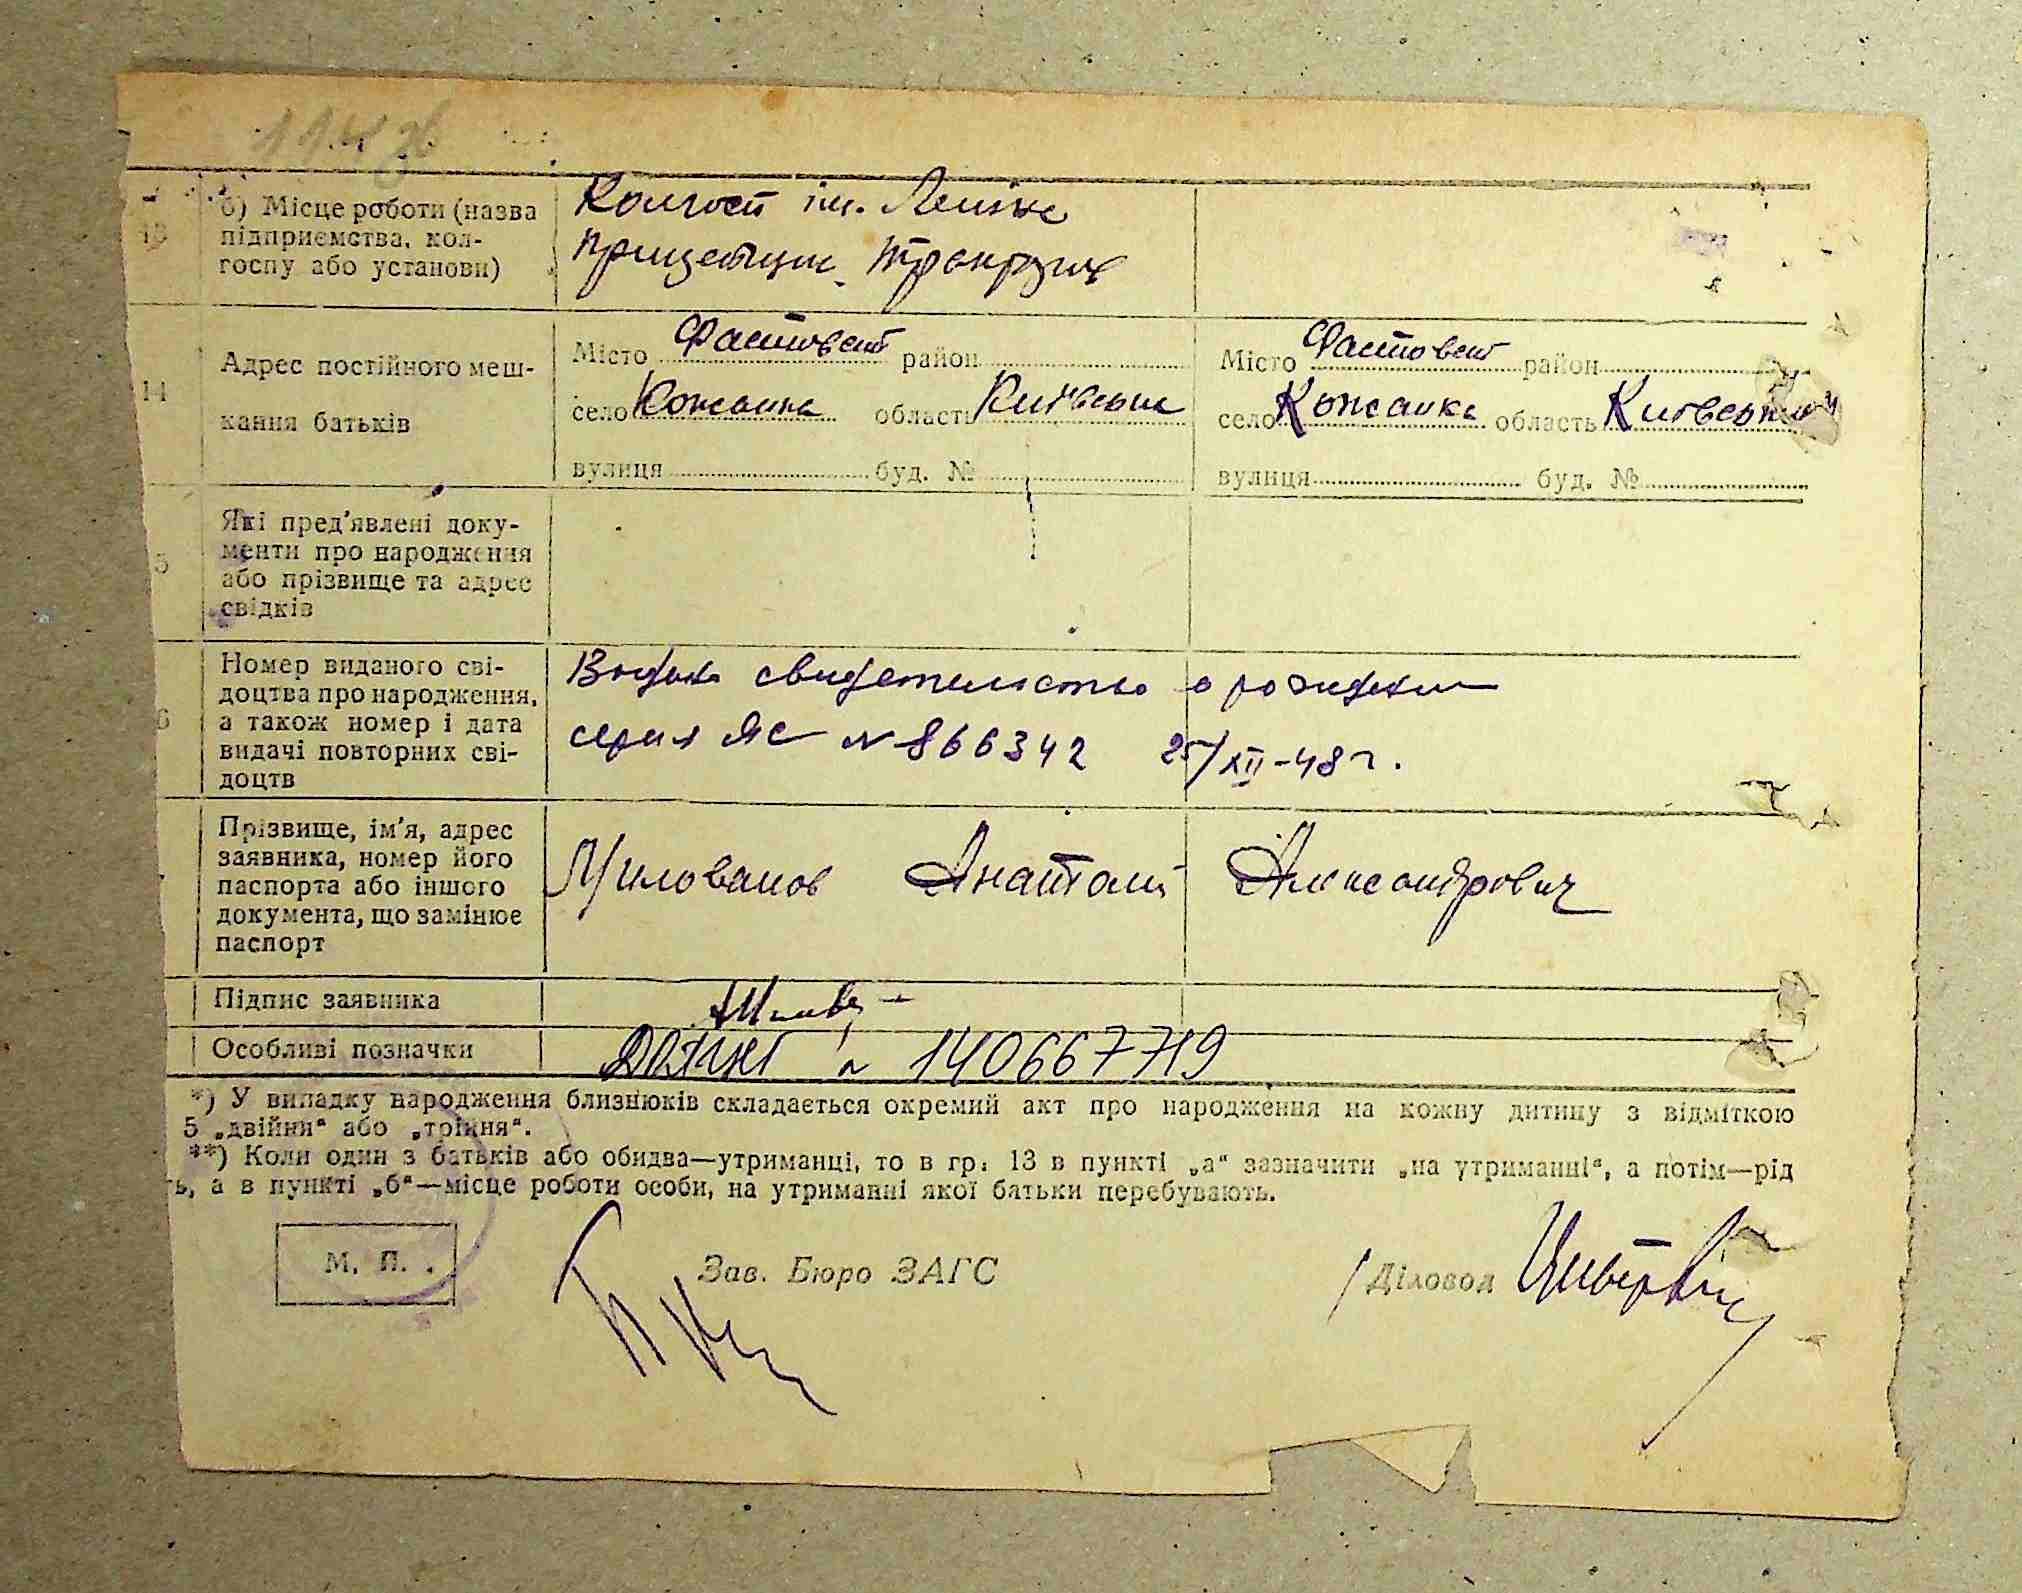 13 б) Місце роботи (назва підприємства, кол-госпу або установи) Колгосп ім. Леніна
14 Адрес постійного меш-кання батьків
Місто Фастовский район
село Кожанка область Киевская
вулиця буд. №
Місто Фастовский район
село Кожанка область Киевская
вулиця буд. №
5 Які пред'явлені доку-
менти про народження
або прізвище та адрес
свідків
6 Номер виданого сві-
доцтва про народження,
а також номер і дата
видачі повторних сві-
доцтв
Видано свидетельство о рождении
серия ЯС № 866342 25/XII-48 г.
Прізвище, ім'я, адрес
заявника, номер його
паспорта або іншого
документа, що замінює
паспорт
Милованов Анатолий Александрович
Підпис заявника
Особливі позначки 140667719
*) У випадку народження близнюків складається окремий акт про народження на кожну дитину з відміткою
5 „двійня“ або „трійня“.
**) Коли один з батьків або обидва—утриманці, то в гр. 13 в пункті „а“ зазначити „на утриманні“, а потім—рід
ь, а в пункті „б“—місце роботи особи, на утриманні якої батьки перебувають.
М. П.
Зав. Бюро ЗАГС
Діловод